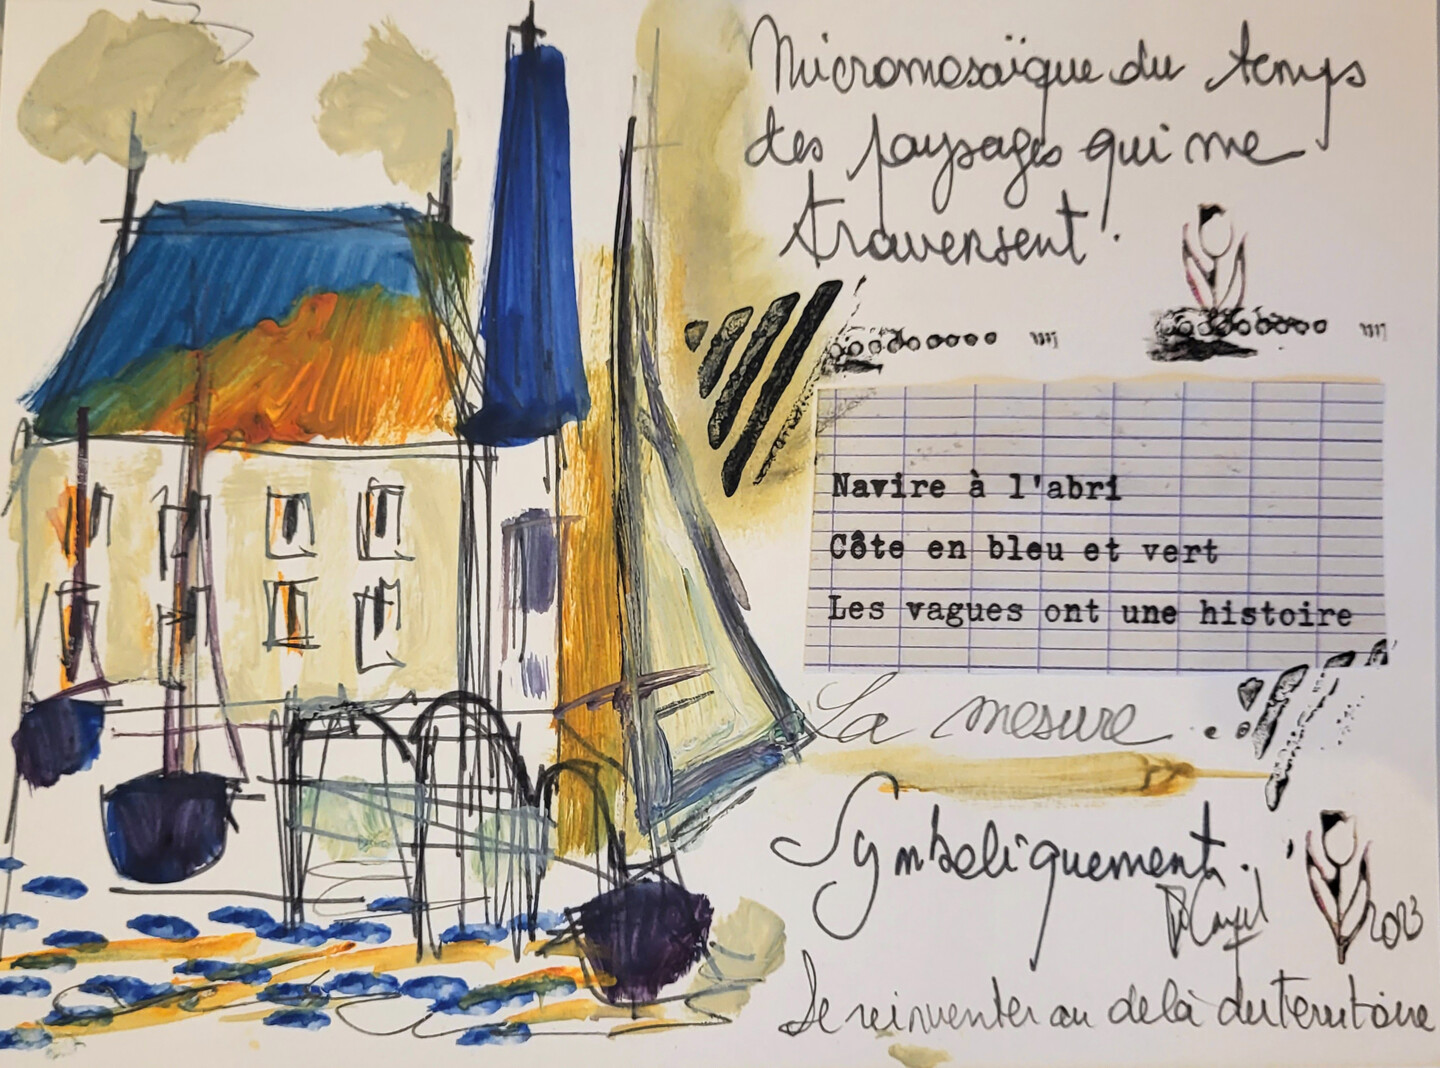 Micromosaïque du temps
des paysages qui me
traversent.
Navire à l'abri
Côte en bleu et vert
Les vagues ont une histoire
La mesure
Symboliquement.
2023
Se reinventer au delà du territoire